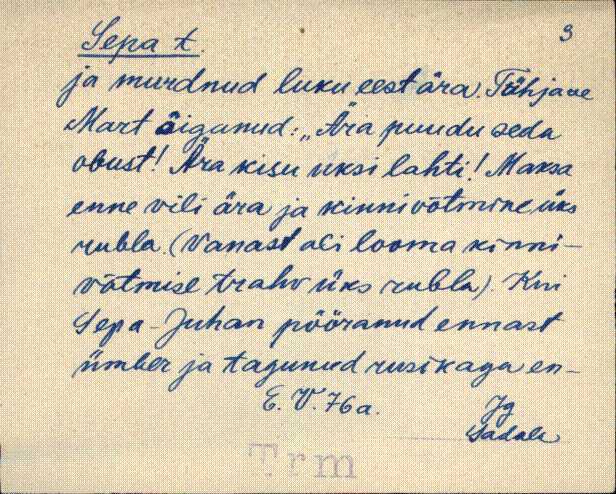 Sepa t.
3
ja murdnud luku eest ära. Tühjave
Mart õigunud: „Ära puudu seda
obust! Ära kisu uksi lahti! Maksa
enne vili ära ja kinnivõtmine üks
rubla. (Vanast oli looma kinni-
võtmise trahv üks rubla). Kui
Sepa-Juhan pööranud ennast
ümber ja tagunud rusikaga en-
E. V. 76 a.
Jg
Sadala
Trm